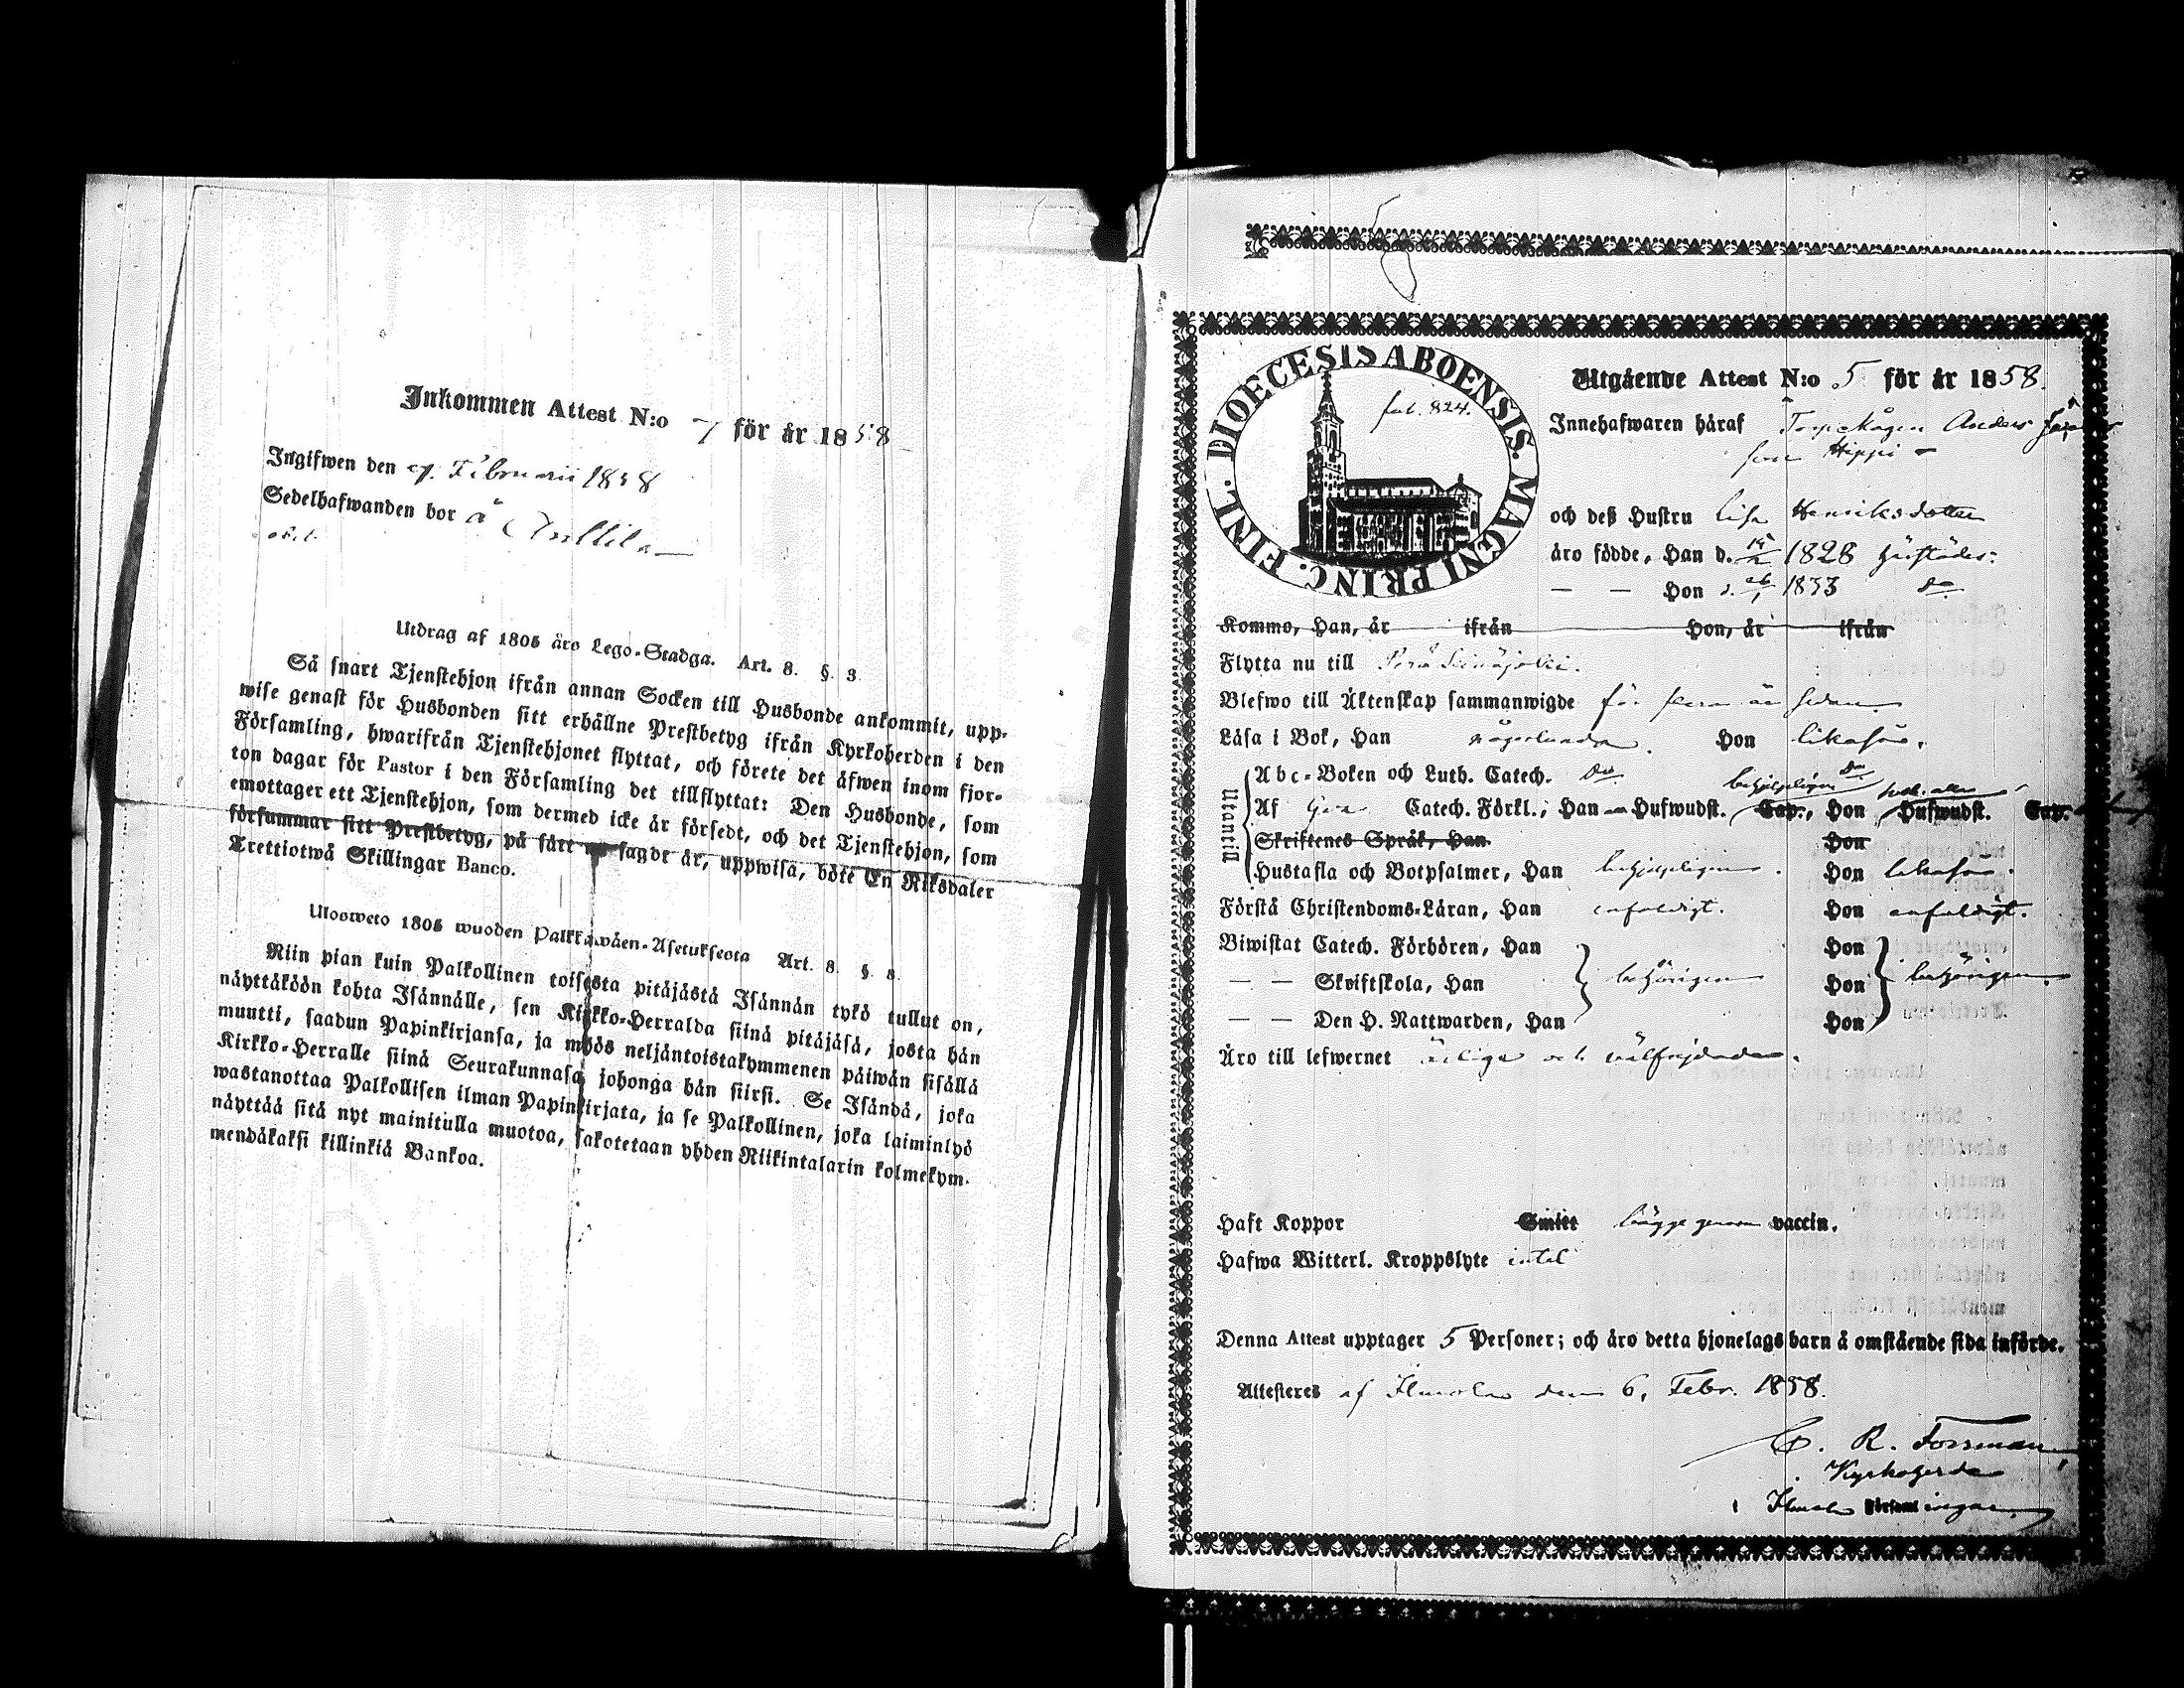 Inkommen Attest N:o 7 för år 1858
Ingifwen den 9. Februarii 1858
Sedelhafwanden bor å Anttila
Utdrag af 1805 års Lego-Stadga. Art. 8. §. 3.
Så snart Tjenstehjon ifrån annan Socken till Husbonde ankommit, upp-
wise genast för Husbonden sitt erhållne Prestbetyg ifrån Kyrkoherden i den
Församling, hwarifrån Tjenstehjonet flyttat, och förete det äfwen inom fjor-
ton dagar för Pastor i den Församling det tillflyttat: Den Husbonde, som
emottager ett Tjenstehjon, som dermed icke är försedt, och det Tjenstehjon, som
försummar sitt Prestbetyg, på sätt nu sagdt är, uppwisa, böte En Riksdaler
Trettiotwå Skillingar Banco.
Ulosweto 1805 wuoden Palkkawäen-Asetuksesta Art. 8. §. 3.
Niin pian kuin Palkollinen toisesta pitäjästä Isännän tykö tullut on,
näyttäköön kohta Isännälle, sen Kirkko-Herralda siinä pitäjäsä, josta hän
muutti, saadun Papinkirjansa, ja myös neljäntoistakymmenen päiwän sisällä
Kirkko-Herralle siinä Seurakunnasa, johonga hän siirsi. Se Isändä, joka
wastanottaa Palkollisen ilman Papinkirjata, ja se Palkollinen, joka laiminlyö
näyttää sitä nyt mainitulla muotoa, sakotetaan yhden Riikintalarin kolmekym-
mendäkaksi killinkiä Bankoa.
DIOECESIS ABOENSIS. MAGNI PRINC. FINL.
fol. 824.
Utgående Attest N:o 5 för år 1858.
Innehafwaren häraf Torpekågen Anders
son Hippi
och deß Hustru Lisa Henriksdotter
äro födde, Han d. 1828 härstädes.
— — Hon d. 26/1 1833 do
Kommo, Han, år ifrån Hon, år ifrån
Flytta nu till Perä Seinäjoki.
Blefwo till Äktenskap sammanwigde för flera år sedan.
Läsa i Bok, Han någorlunda. Hon likaså.
Utantill
Abc-Boken och Luth. Catech. Do Do
Af Catech. Förkl., Han Hufwudst. Cap., Hon Hufwudst. Cap.
behjelpligen
Skriftenes Språk, Han Hon
Hustafla och Botpsalmer, Han behjelpligen. Hon likaså.
Förstå Christendoms-Läran, Han enfaldigt. Hon enfaldigt.
Biwistat Catech. Förhören, Han Hon
— — Skriftskola, Han behörigen Hon behörigen.
— — Den H. Nattwarden, Han Hon
Äro till lefwernet ärliga och välfrejdade.
Haft Koppor Smitt bägge genom vaccin.
Hafwa Witterl. Kroppslyte intet
Denna Attest upptager 5 Personer; och äro detta hjonelags barn å omstående sida införde.
Attesteres af Ilmola den 6. Febr. 1858.
C. R. Forsman
Kyrkoherde
i Ilmola Församlingar